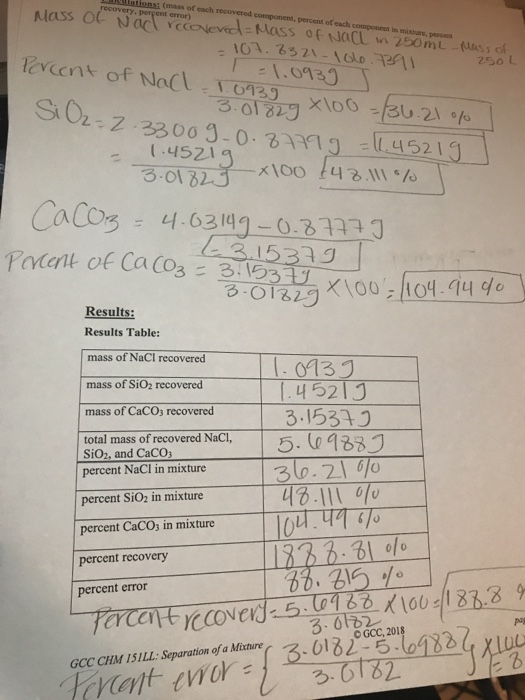 (mass of each recovered component, percent of each component in mixture, percent
recovery, percent error)
Mass of Nacl recovered = Mass of NaCl in 250mL - Mass of
250
= 107.8321 - 106.7391
= 1.093g
Percent of NaCl = 1.093g
3.0182g × 100 = 36.21 %
SiO2 = 2.3300g - 0.8779g = 1.4521g
= 1.4521g
3.0182g × 100 48.111 %
CaCO3 = 4.0314g - 0.8777g
= 3.1537g
Percent of CaCO3 = 3.1537g
3.0182g × 100 = 104.94 %
Results:
Results Table:
mass of NaCl recovered 1.093g
mass of SiO2 recovered 1.4521g
mass of CaCO3 recovered 3.1537g
total mass of recovered NaCl, 5.6988g
SiO2, and CaCO3
percent NaCl in mixture 36.21 %
percent SiO2 in mixture 48.111 %
percent CaCO3 in mixture 104.49 %
percent recovery 1888.81 %
percent error 88.815 %
Percent recovery = 5.6988 × 100 = 188.8
3.0182
© GCC, 2018
GCC CHM 151LL: Separation of a Mixture
Percent error = { 3.0182 - 5.6988 } × 100
3.0182 = 8